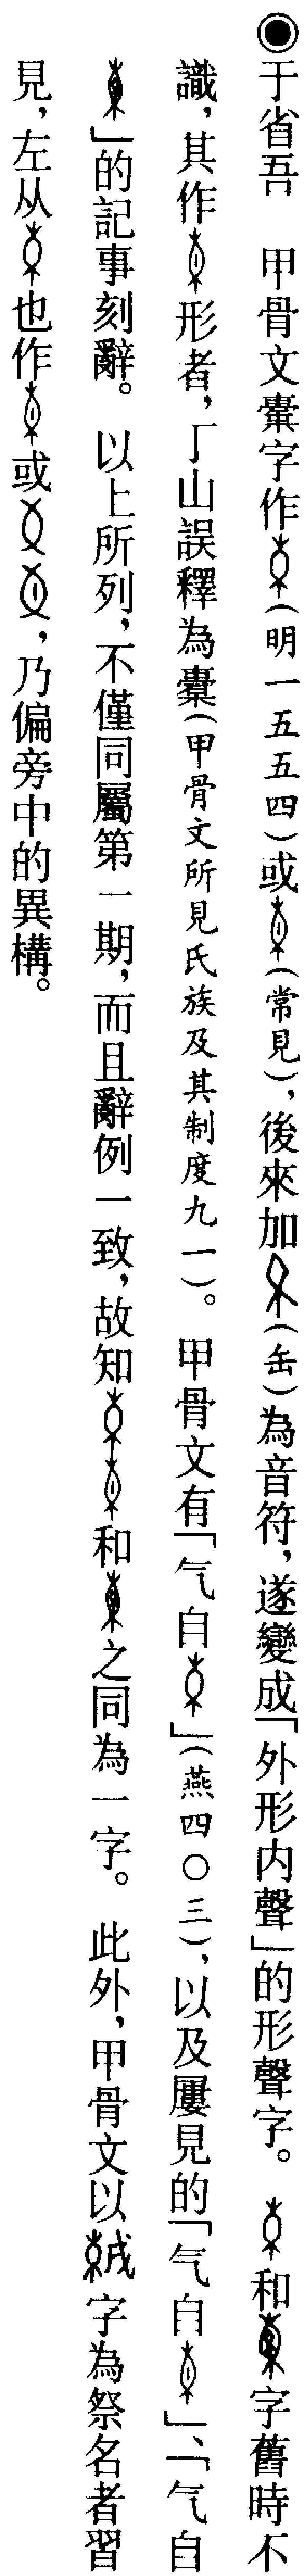 ◉于省吾　甲骨文橐字作(明一五五四)或(常見)，後來加(缶)為音符，遂變成「外形內聲」的形聲字。和字舊時不
識，其作形者，丁山誤釋為橐(甲骨文所見氏族及其制度九一)。甲骨文有「气自」(燕四〇三)，以及屢見的「气自」、「气自
」的記事刻辭。以上所列，不僅同屬第一期，而且辭例一致，故知和之同為一字。此外，甲骨文以字為祭名者習
見，左从也作或，乃偏旁中的異構。